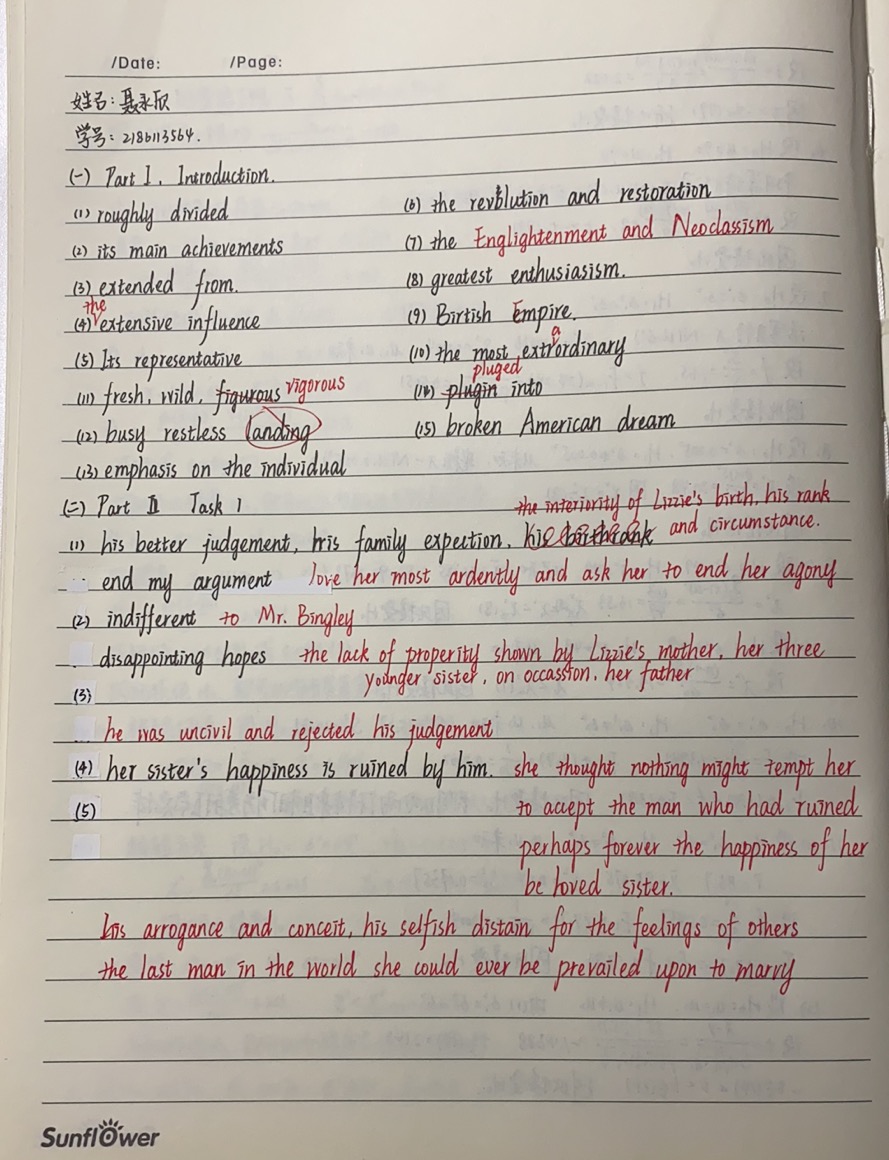 /Date: /Page:
姓名: 聂永欣
学号: 2186113564.
(一) Part I. Introduction.
(1) roughly divided
(2) its main achievements
(3) extended from.
(4) the extensive influence
(5) Its representative
(6) the revolution and restoration
(7) the Englightenment and Neoclassism
(8) greatest enthusiasism.
(9) Birtish Empire.
(10) the most extraordinary
(11) fresh, wild, figurous vigorous
(12) busy restless landing
(13) emphasis on the individual
(14) plugin pluged into
(15) broken American dream
(二) Part II Task 1
(1) his better judgement, his family expection, the interiority of Lizzie's birth, his rank
and circumstance.
end my argument love her most ardently and ask her to end her agony
(2) indifferent to Mr. Bingley
disappointing hopes the lack of properity shown by Lizzie's mother, her three
younger sister, on occassion, her father
(3)
he was uncivil and rejected his judgement
(4) her sister's happiness is ruined by him. she thought nothing might tempt her
(5) to accept the man who had ruined
perhaps forever the happiness of her
be loved sister.
his arrogance and conceit, his selfish distain for the feelings of others
the last man in the world she could ever be prevailed upon to marry
Sunflower